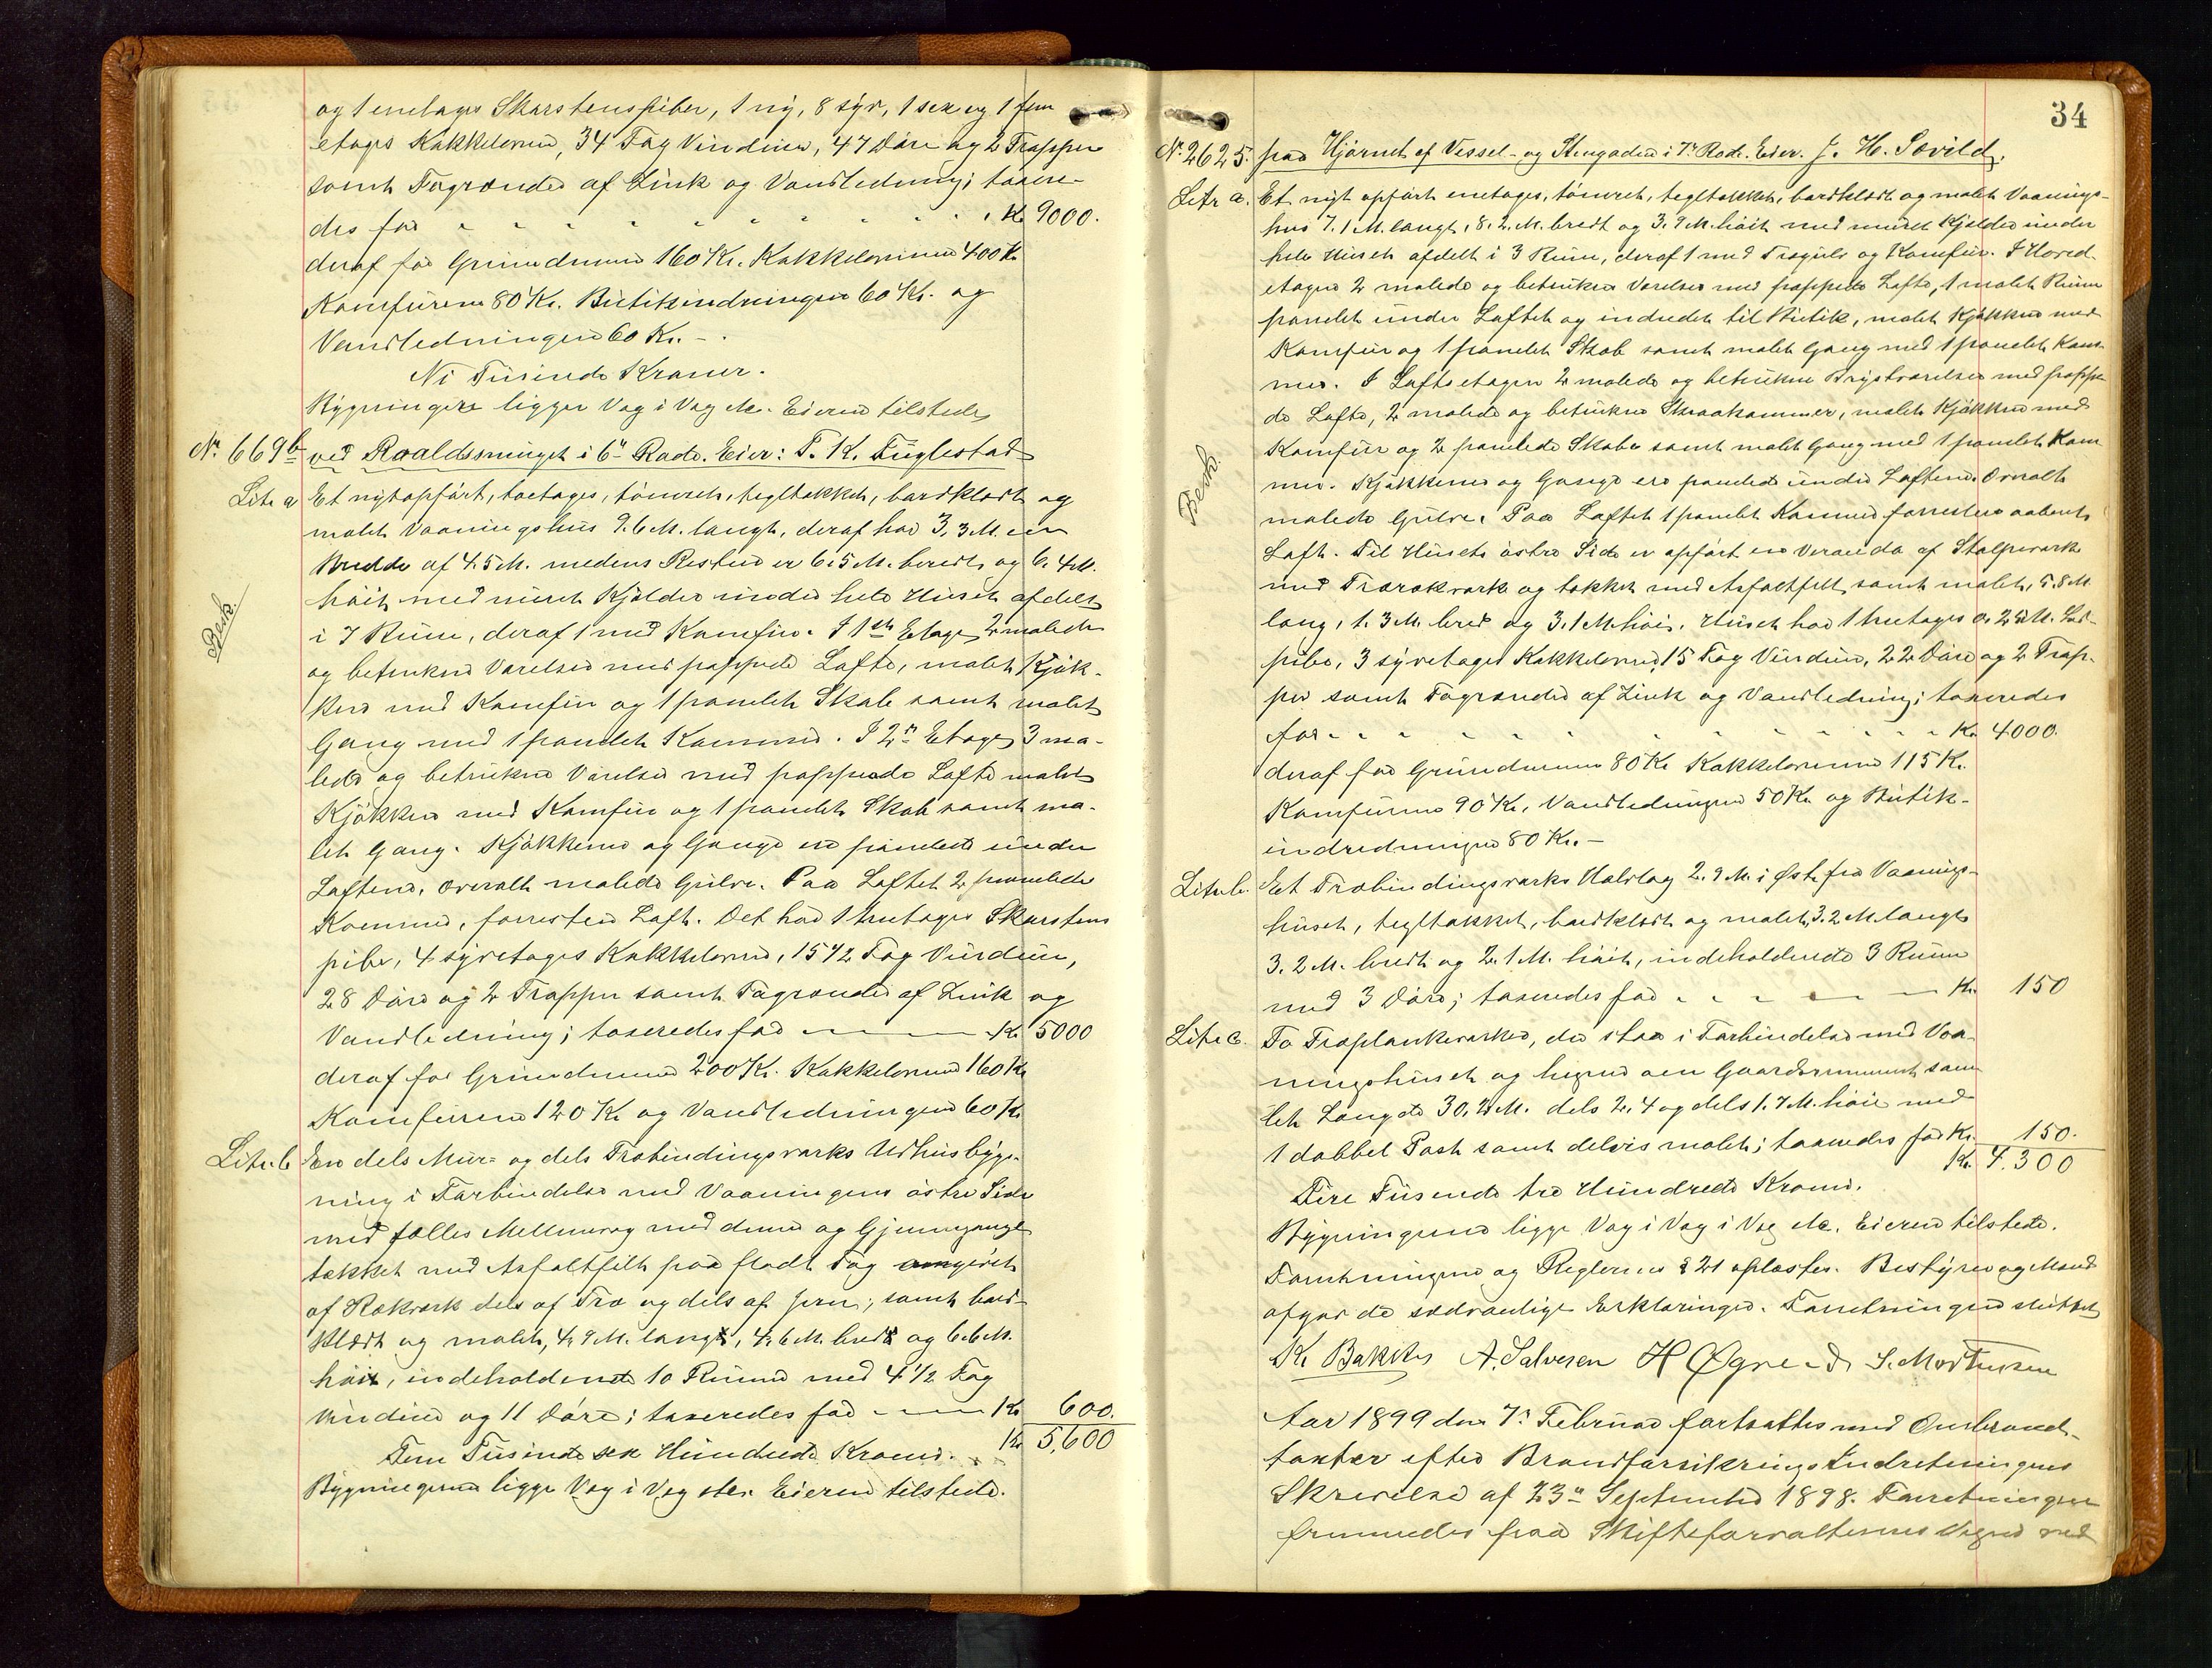 og 1 enetages Skorstenspiber, 1 ny, 8 syv, 1 sex og 1 fem
etages Kakkelovne, 34 Fag Vinduer, 47 Døre og 2 Trapper
samt Tagrender af Zink og Vandledning; taxere-
des for Kr. 9000.
deraf for Grundmuren 160 Kr. Kakkelovnene 400 Kr
Komfurene 80 Kr. Butikindredningen 60 Kr. og
Vandledningen 60 Kr. -
Ni Tusinde Kroner.
Bygningen ligger Væg i Væg etc. Eieren tilstede
No. 669b ved Roaldssmuget i 6te Rode. Eier: T. K. Fuglestad
Litr a Et nytopført, toetages, tømret, tegltækket, bordklædt og
malet Vaaningshus 9.6 M. langt, deraf har 3,3 M. en
Bredde af 4.5 M. medens Resten er 6.5 M. bredt, og 6.4 M.
høit med muret Kjælder under hele Huset afdelt
i 7 Rum, deraf 1 med Komfur. I 1ste Etage 2 malede
og betrukne Værelser med pappede Lofte, malet Kjøk-
ken med Komfur og 1 panelet Skab samt malet
Gang med 1 panelet Kammer. I 2den Etage 3 ma-
lede og betrukne Værelser med pappede Lofte malet
Kjøkken med Komfur og 1 panelet Skab samt ma-
let Gang. Kjøkkenene og Gange ere panelede under
Loftene. Overalt malede Gulve. Paa Loftet 2 panelede
Kammer, forresten Loft. Det har 1 treetages Skorstens
pibe, 4 syvetages Kakkelovne, 15 1/2 Fag Vinduer,
28 Døre og 2 Trapper samt Tagrender af Zink og
Vandledning; taxeredes for Kr 5000
deraf for Grundmuren 200 Kr. Kakkelovnene 160 Kr
Komfurene 120 Kr og Vandledningen 60 Kr.
Litr. b En dels Mur- og dels Træbindingsværks Udhusbyg-
ning i Forbindelse med Vaaningens østre Side
med fælles Mellemvæg med denne og Gjennemgang
tækket med Asfaltfilt paa fladt Tag omgivet
af Rækværk dels af Træ og dels af Jern; samt bord-
klædt og malet, 4,9 M. langt, 4,6 M. bredt og 6.6 M.
høit, indeholdende 10 Rum med 4 1/2 Fag
Vinduer og 11 Døre; taxeredes for Kr 600.
Kr 5,600
Fem Tusinde sex Hundrede Kroner.
Bygningerne ligge Væg i Væg etc. Eieren tilstede.
Besk.
34
No. 2625. paa Hjørnet af Vessel- og Stengaden i 7de Rode. Eier. J. H. Sævild.
Litr a. Et nyt opført enetages, tømret, tegltækket, bordklædt og malet Vaanings-
hus 7.1 M. langt, 8.2 M. bredt og 3.9 M. høit med muret Kjælder under
hele Huset afdelt i 3 Rum, deraf 1 med Trægulv og Komfur. I Hoved
etagen 2 malede og betrukne Værelser med pappede Lofte, 1 malet Rum
panelet under Loftet og indredet til Butik, malet Kjøkken med
Komfur og 1 panelet Skab samt malet Gang med 1 panelet Kam
mer. I Loftsetagen 2 malede og betrukne Brystværelser med pappe
de Lofte, 2 malede og betrukne Skraakammer, malet Kjøkken med
Komfur og 2 panelede Skabe samt malet Gang med 1 panelet Kam
mer. Kjøkkenene og Gange ere panelede under Loftene. Overalt
malede Gulve. Paa Loftet 1 panelet Kammer forresten aabent
Loft. Til Husets østre Side er opført en Veranda af Stolpeværk
med Trærækværk og tækket med Asfaltfilt samt malet, 5.8 M.
lang, 1.3 M. bred og 3.1 M. høi. Huset har 1 treetages
pibe, 3 syvetages Kakkelovne, 15 Fag Vinduer, 22 Døre og 2 Trap-
per samt Tagrender af Zink og Vandledning; taxeredes
for Kr 4000.
deraf for Grundmuren 80 Kr Kakkelovnene 115 Kr.
Komfurene 90 Kr. Vandledningen 50 Kr og Butik-
indredningen 80 Kr. -
Litr. b. Et Træbindingsværks Halvtag 2.9 M. i Øst fra Vaanings-
huset, tegltækket, bordklædt og malet, 3.2 M langt
3.2 M. bredt og 2.1 M. høit, indeholdende 3 Rum
med 3 Døre; taxeredes for Kr. 150
Litr c. To Træplankeværker, der staa i Forbindelse med Vaa-
ningshuset og hegner om Gaardsrummet sam
let Længde 30.2 M. dels 2.4 og dels 1.7 M. høie med
1 dobbel Port samt delvis malet; taxeredes for Kr. 150.
Kr. 4.300
Fire Tusinde tre Hundrede Kroner.
Bygningerne ligge Væg i Væg i Væg etc. Eieren tilstede.
Forretningen og Reglernes § 21 oplæstes. Bestyrer og Mænd
afgav de sædvanlige Erklæringer. Forretningen sluttet
K. Bakke A. Salvesen H Øgreid S. Mortensen
Aar 1899 den 7de Februar fortsattes med Ombrand-
taxter efter Brandforsikrings Indretningens
Skrivelse af 23de September 1898. Forretningen
fremmedes paa Skifteforvalterens Vegne ved
Besk.